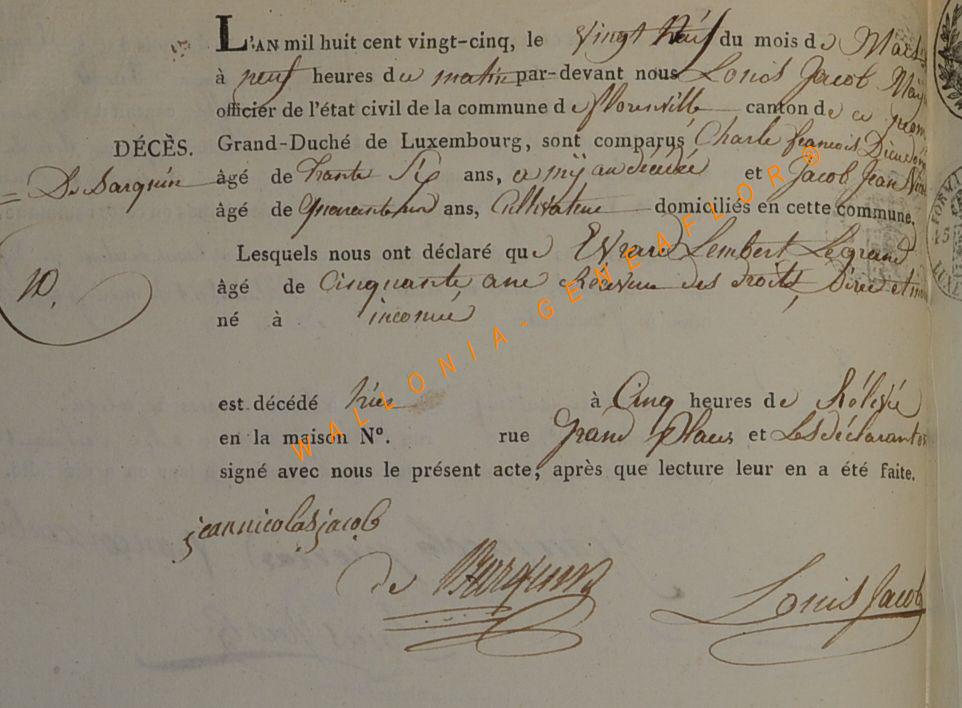 L'AN mil huit cent vingt-cinq, le vingt Neuf du mois de Mars
à neuf heures du matin par-devant nous Louis Jacob
officier de l'état civil de la commune de florenville canton de ce
DÉCÈS.
Grand-Duché de Luxembourg, sont comparus Charle françois
âgé de trente Six ans, amÿ au décédé et Jacob Jean
âgé de Quarante un ans, Cultivateur domiciliés en cette commune.
Lesquels nous ont déclaré que Evrard Lembert Legrand
âgé de Cinquante ans Réceveur des droits,
né à inconnu
10.
est décédé hier à Cinq heures de Rélevée
en la maison N°. rue Grand Place et Les déclarants
signé avec nous le présent acte, après que lecture leur en a été faite.
jean nicolas jacob
de
Louis Jacob
WALLONIA-GENEAFLOR®